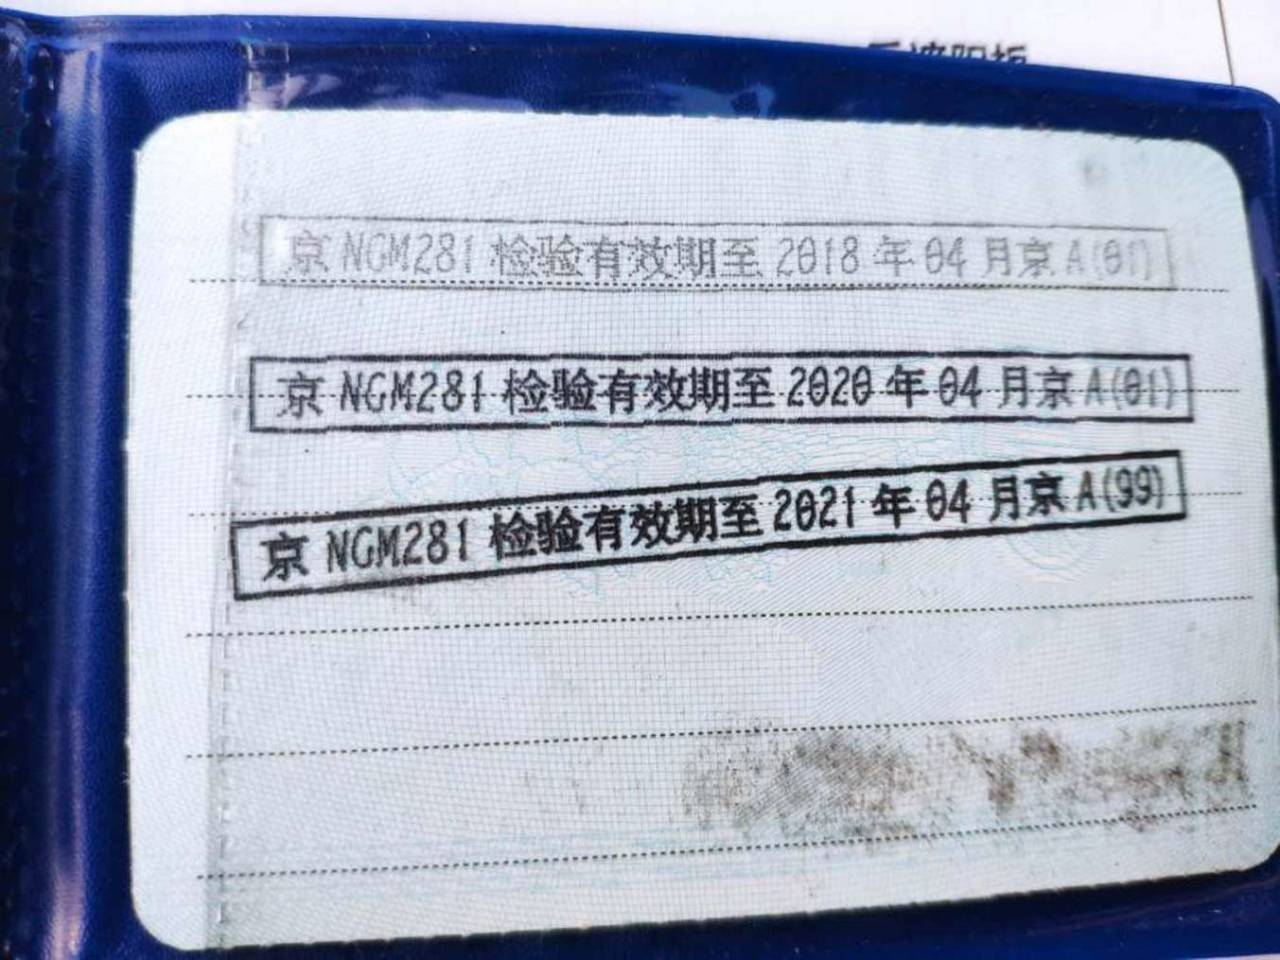 京 NGM281 检验有效期至 2018 年 04 月京 A(01)
京 NGM281 检验有效期至 2020 年 04 月京 A(01)
京 NGM281 检验有效期至 2021 年 04 月京 A(99)